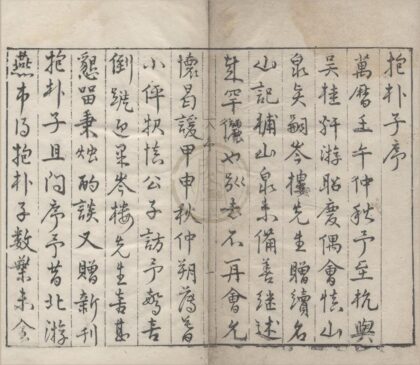 抱朴子序
萬曆壬午仲秋予至杭與
吳桂軒游昭慶偶會慎山
泉矣嗣岑樓先生贈續名
山記輔山泉未備善繼述
罕儷也別去不再會尤
懷曷諼甲申秋仲朔薄暮
小伻報慎公子訪予驚喜
倒屣迎果岑樓先生喜甚
懇留秉燭酌談又贈新刊
抱朴子且問序予昔北游
燕市得抱朴子數葉未全